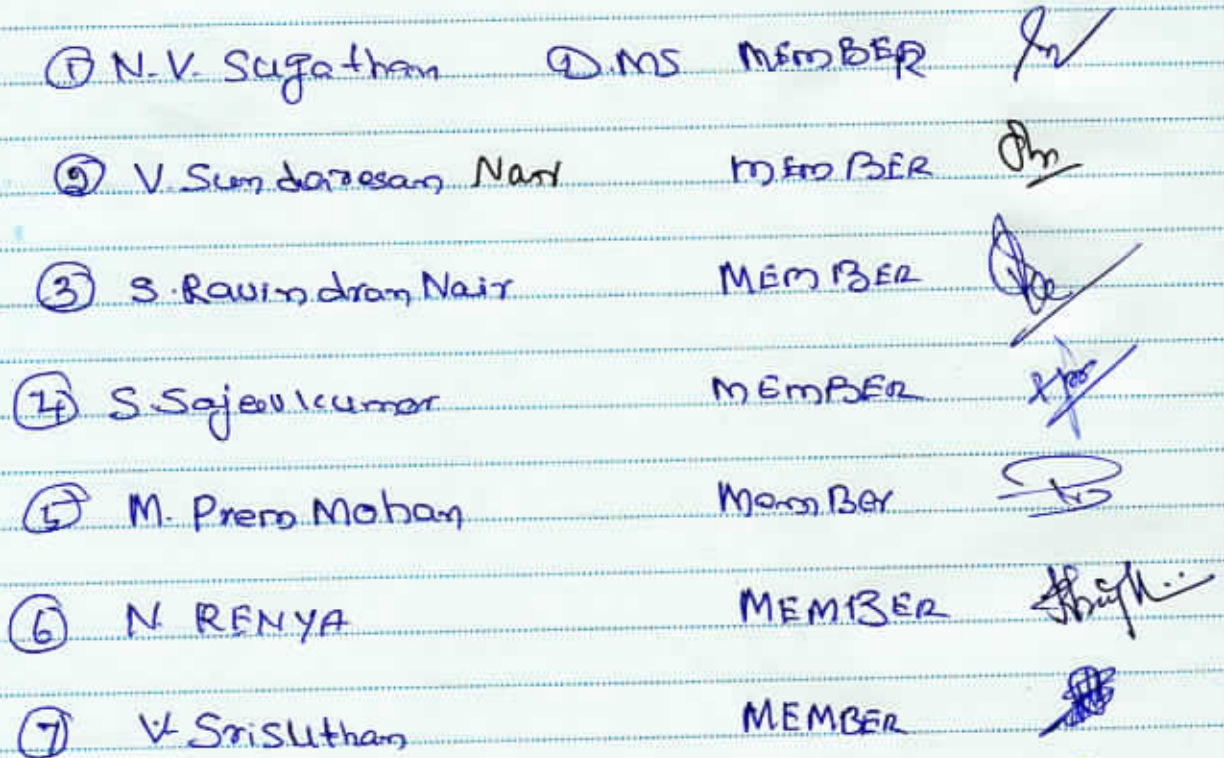 ① N.V. Sugathan D.MS MEMBER
② V. Sundaresan Nair MEMBER
③ S. Ravindran Nair MEMBER
④ S. Sajeevkumar MEMBER
⑤ M. Prem Mohan MemBer
⑥ N. RENYA MEMBER
⑦ V. Srisuthan MEMBER